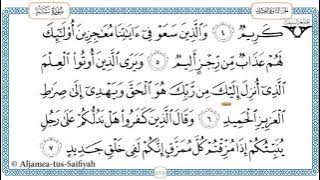 سُورَةُ سَبَإٍ
كَرِيمٌ ٤ وَٱلَّذِينَ سَعَوْ فِىٓ ءَايَٰتِنَا مُعَٰجِزِينَ أُوْلَٰٓئِكَ
لَهُمْ عَذَابٌ مِّن رِّجْزٍ أَلِيمٌ ٥ وَيَرَى ٱلَّذِينَ أُوتُوا۟ ٱلْعِلْمَ
ٱلَّذِىٓ أُنزِلَ إِلَيْكَ مِن رَّبِّكَ هُوَ ٱلْحَقَّ وَيَهْدِىٓ إِلَىٰ صِرَٰطِ
ٱلْعَزِيزِ ٱلْحَمِيدِ ٦ وَقَالَ ٱلَّذِينَ كَفَرُوا۟ هَلْ نَدُلُّكُمْ عَلَىٰ رَجُلٍ
يُنَبِّئُكُمْ إِذَا مُزِّقْتُمْ كُلَّ مُمَزَّقٍ إِنَّكُمْ لَفِى خَلْقٍ جَدِيدٍ ٧
© Aljamea-tus-Saifiyah